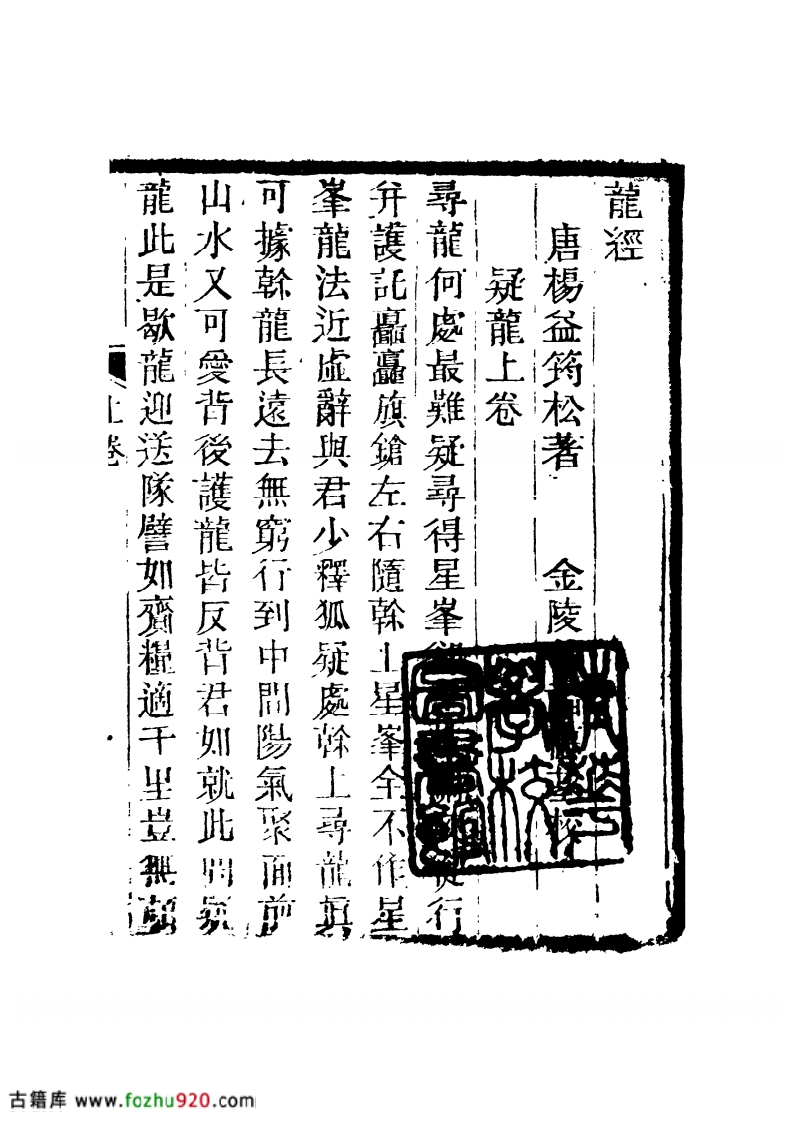 龍經
唐楊益筠松著 金陵
疑龍上卷
尋龍何處最難疑尋得星峯 行
并護託矗矗旗鎗左右隨幹上星峯全不作星
峯龍法近虛辭與君少釋狐疑處幹上尋龍真
可據幹龍長遠去無窮行到中間陽氣聚面前
山水又可愛背後護龍皆反背君如就此問疑
龍此是歇龍迎送隊譬如齎糧適千里豈無
上卷
清華學校圖書館
古籍库 www.fozhu920.com